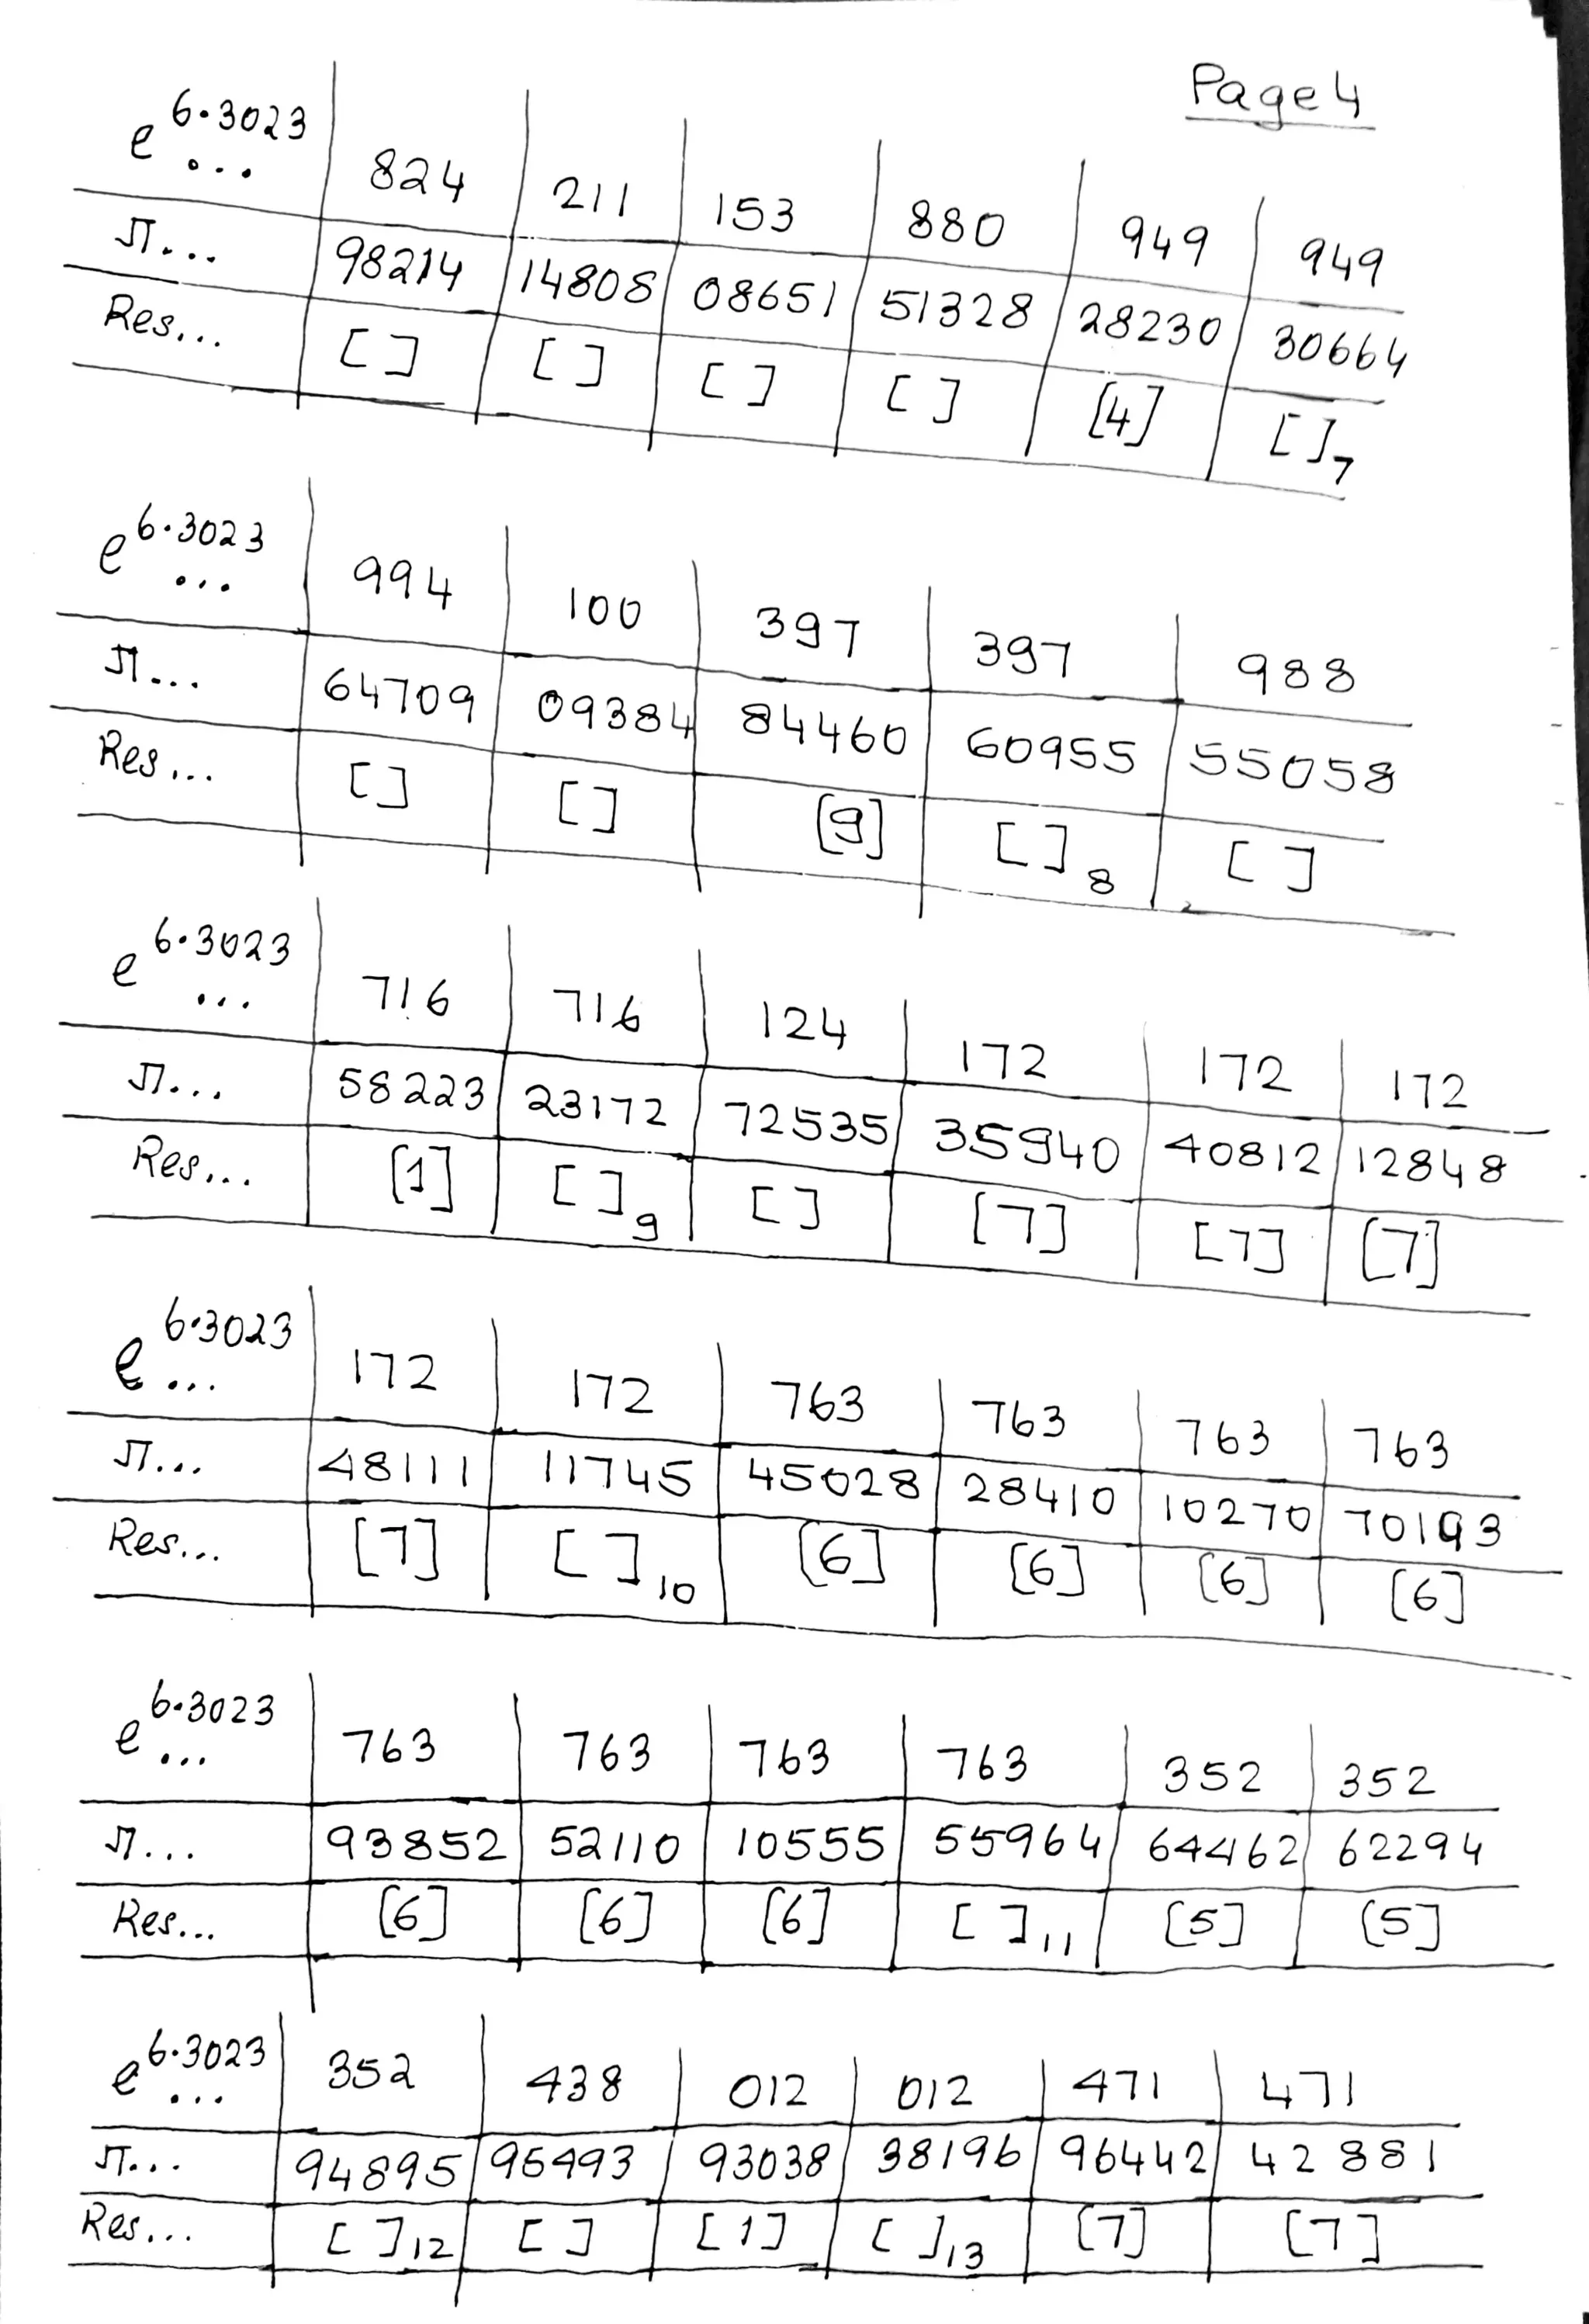 Page 4
e^6.3023 ... 824 211 153 880 949 949
π... 98214 14808 08651 51328 28230 30664
Res... [ ] [ ] [ ] [ ] [4] [ ]7
e^6.3023 ... 994 100 397 397 988
π... 64709 09384 84460 60955 55058
Res... [ ] [ ] [9] [ ]8 [ ]
e^6.3023 ... 716 716 124 172 172 172
π... 58223 23172 72535 35940 40812 12848
Res... [1] [ ]9 [ ] [7] [7] [7]
e^6.3023 ... 172 172 763 763 763 763
π... 48111 11745 45028 28410 10270 70193
Res... [7] [ ]10 [6] [6] [6] [6]
e^6.3023 ... 763 763 763 763 352 352
π... 93852 52110 10555 55964 64462 62294
Res... [6] [6] [6] [ ]11 [5] [5]
e^6.3023 ... 352 438 012 012 471 471
π... 94895 95493 93038 38196 96442 42881
Res... [ ]12 [ ] [1] [ ]13 [7] [7]